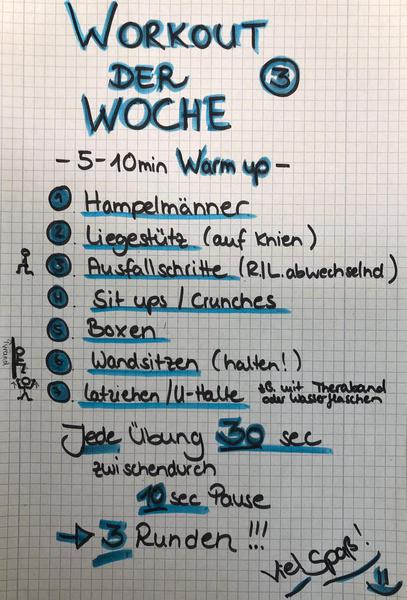 WORKOUT
DER ③
WOCHE
- 5-10min Warm up -
① Hampelmänner
② Liegestütz (auf Knien)
③ Ausfallschritte (R/L.abwechselnd)
④ Sit ups / Crunches
⑤ Boxen
⑥ Wandsitzen (halten!)
Wand
⑦ Latziehen / U-Halte z.B. mit Theraband
oder Wasserflaschen
Jede Übung 30 sec
zwischendurch
10 sec Pause
→ 3 Runden !!!
Viel Spaß!